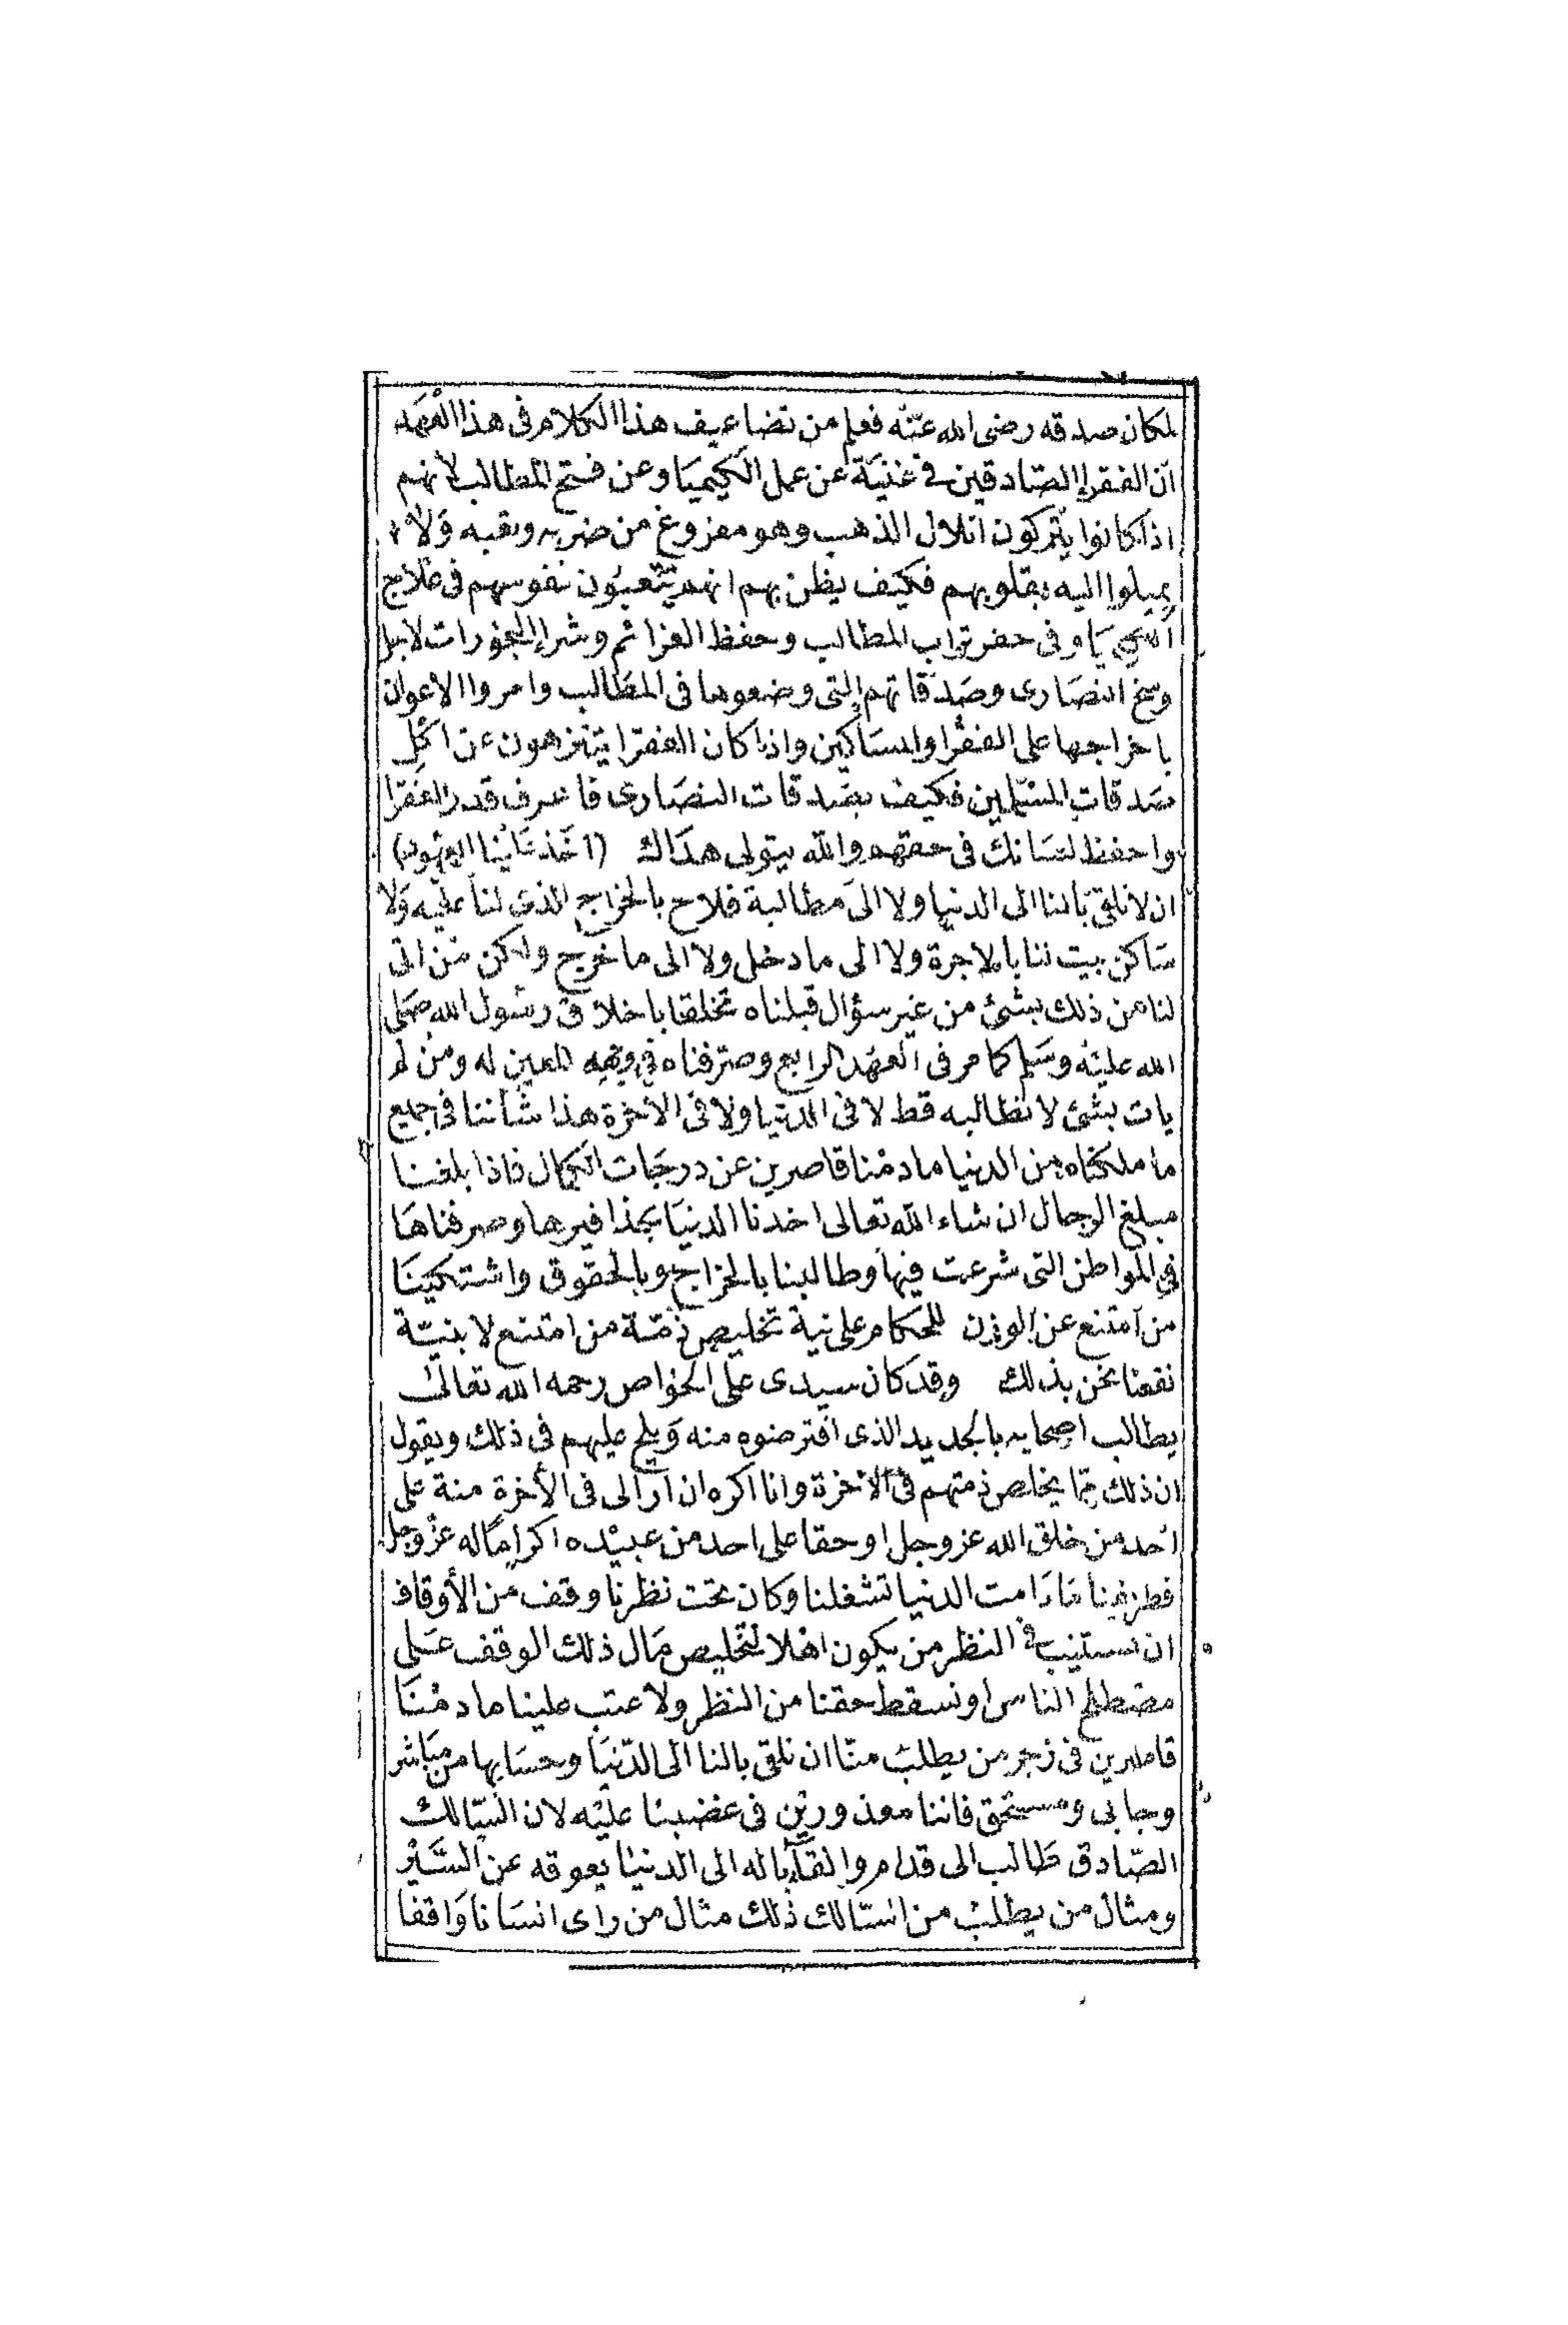 لمكان صدقه رضى الله عنه فعلم من تضاعيف هذا الكلام فى هذا العهد
ان الفقرا الصادقين فى غنية عن عمل الكيميا وعن فتح المطالب لانهم
اذا كانوا يتركون اتلال الذهب وهو مفروغ من ضربه وتعبه ولا
يميلوا اليه بقلوبهم فكيف يظن بهم انهم يتعبون نفوسهم فى علاج
الكيميا وفى حفر تراب المطالب وحفظ العزائم وشرا البخورات لاجل
وسخ النصارى وصدقاتهم التى وضعوها فى المطالب وامروا الاعوان
باخراجها على الفقرا والمساكين واذا كان الفقرا يتنزهون عن اكل
صدقات المسلمين فكيف بصدقات النصارى فاعرف قدر الفقرا
واحفظ لسانك فى حقهم والله يتولى هداك (اخذ علينا العهود)
ان لا نلقى بالنا الى الدنيا ولا الى مطالبة فلاح بالخراج الذى لنا عليه ولا
ساكن بيت لنا بالاجرة ولا الى ما دخل ولا الى ما خرج ولكن من اتى
لنا من ذلك بشئ من غير سؤال قبلناه تخلقا باخلاق رسول الله صلى
الله عليه وسلم كما مر فى العهد الرابع وصرفناه فى وجهه المعين له ومن لم
يات بشئ لا نطالبه قط لا فى الدنيا ولا فى الأخرة هذا شأننا فى جميع
ما ملكناه من الدنيا ما دمنا قاصرين عن درجات الكمال فاذا بلغنا
مبلغ الرجال ان شاء الله تعالى اخذنا الدنيا بحذافيرها وصرفناها
فى المواطن التى شرعت فيها وطالبنا بالخراج وبالحقوق واشتكينا
من امتنع عن الوزن للحكام على نية تخليص ذمة من امتنع لا بنية
نفعنا نحن بذلك وقد كان سيدى على الخواص رحمه الله تعالى
يطالب اصحابه بالجديد الذى اقترضوه منه ويلح عليهم فى ذلك ويقول
ان ذلك مما يخلص ذمتهم فى الاخرة وانا اكره ان ارا لى فى الأخرة منة على
احد من خلق الله عز وجل او حقا على احد من عبيده اكراما له عز وجل
فطريقنا ما دامت الدنيا تشغلنا وكان تحت نظرنا وقف من الأوقاف
ان نستنيب فى النظر من يكون اهلا لتخليص مال ذلك الوقف على
مصطلح الناس او نسقط حقنا من النظر ولا عتب علينا ما دمنا
قاصرين فى زجر من يطلب منا ان نلقى بالنا الى الدنيا وحسابها من مباشر
وجابى ومستحق فاننا معذورين فى غضبنا عليه لان السالك
الصادق طالب الى قدام والقاء باله الى الدنيا يعوقه عن السير
ومثال من يطلب من السالك ذلك مثال من راى انسانا واقفا